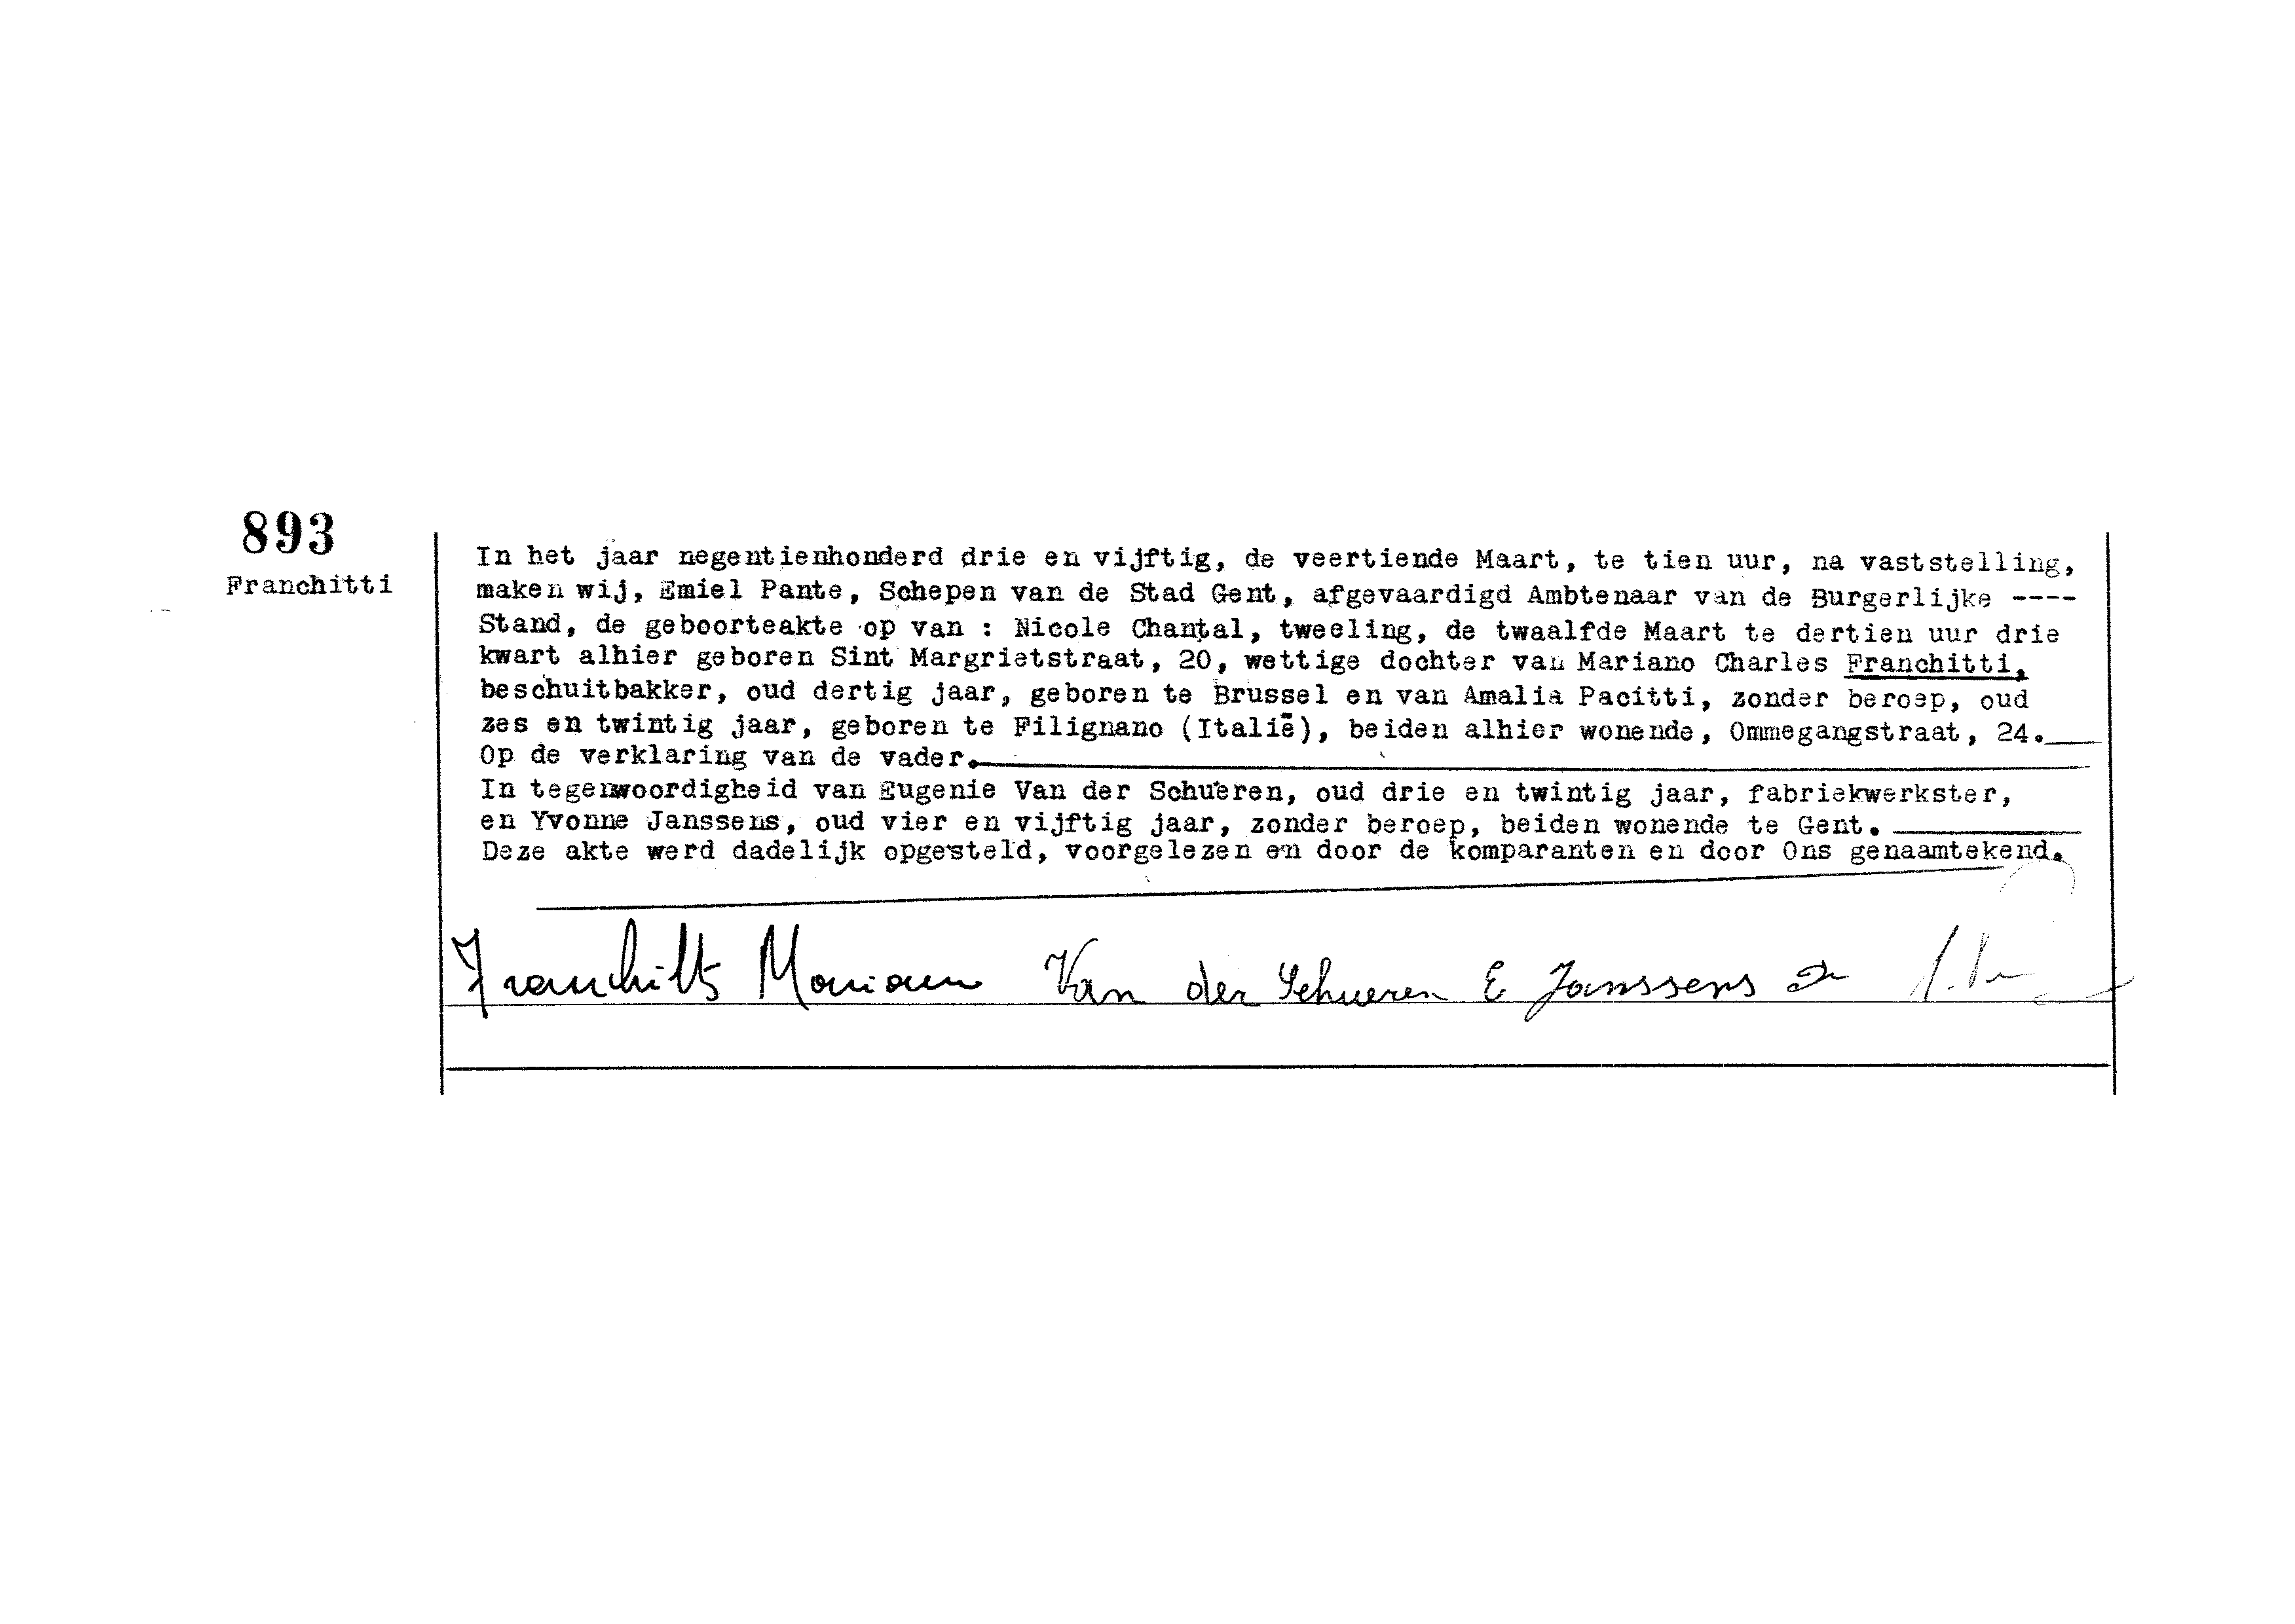 893
Franchitti
In het jaar negentienhonderd drie en vijftig, de veertiende Maart, te tien uur, na vaststelling,
maken wij, Emiel Pante, Schepen van de Stad Gent, afgevaardigd Ambtenaar van de Burgerlijke ----
Stand, de geboorteakte op van : Nicole Chantal, tweeling, de twaalfde Maart te dertien uur drie
kwart alhier geboren Sint Margrietstraat, 20, wettige dochter van Mariano Charles Franchitti,
beschuitbakker, oud dertig jaar, geboren te Brussel en van Amalia Pacitti, zonder beroep, oud
zes en twintig jaar, geboren te Filignano (Italië), beiden alhier wonende, Ommegangstraat, 24.
Op de verklaring van de vader.
In tegenwoordigheid van Eugenie Van der Schueren, oud drie en twintig jaar, fabriekwerkster,
en Yvonne Janssens, oud vier en vijftig jaar, zonder beroep, beiden wonende te Gent.
Deze akte werd dadelijk opgesteld, voorgelezen en door de komparanten en door Ons genaamtekend.
Franchitti Mariano Van der Schueren E Janssens